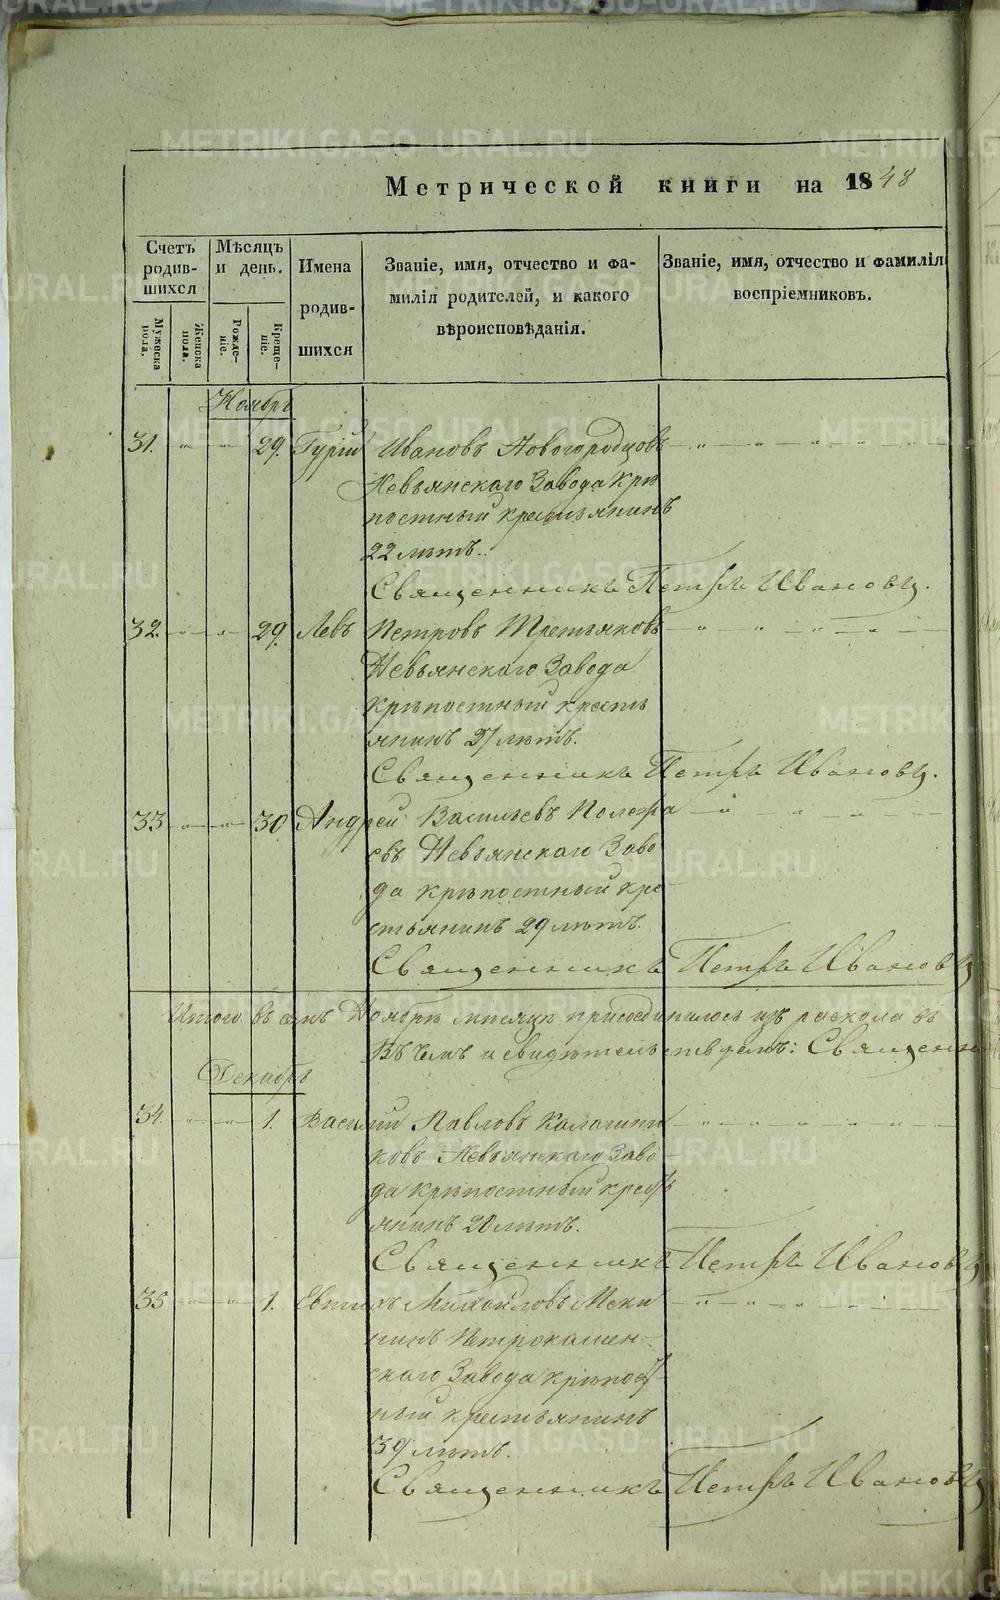 Метрической книги на 1848
Счетъ родившихся
Мѣсяцъ и день.
Имена родившихся
Званіе, имя, отчество и фамилія родителей, и какого вѣроисповѣданія.
Званіе, имя, отчество и фамилія воспріемниковъ.
Мужеска пола.
Женска пола.
Рожденіе.
Крещеніе.
Ноябрь
31. " " 29. Гурій Ивановъ Новогородцовъ " " " " " "
Невьянскаго Завода крѣ
постный крестьянинъ
22 лѣтъ.
Священникъ Петръ Ивановъ.
32. " " 29. Левъ Петровъ Третьяковъ " " " "
Невьянскаго Завода
крѣпостный кресть
янинъ 27 лѣтъ.
Священникъ Петръ Ивановъ.
33 " " 30 Андрей Васильевъ Полежа " " "
евъ Невьянскаго Заво
да крѣпостный кре-
стьянинъ 29 лѣтъ.
Священникъ Петръ Ивановъ
Итого въ семъ Ноябрѣ мѣсяцѣ присоединилось изъ раскола въ
Въ чемъ и свидѣтельствуемъ: Священни
Декабрь
34. " " 1. Василій Павловъ Калашни " " " " "
ковъ Невьянскаго Заво-
да крѣпостный крест
янинъ 20 лѣтъ.
Священникъ Петръ Ивановъ
35 " " 1. Михайловъ " " " "
нинъ Петрокамен-
скаго Завода крѣпост-
ный крестьянинъ
39 лѣтъ.
Священникъ Петръ Ивановъ
METRIKI.GASO-URAL.RU